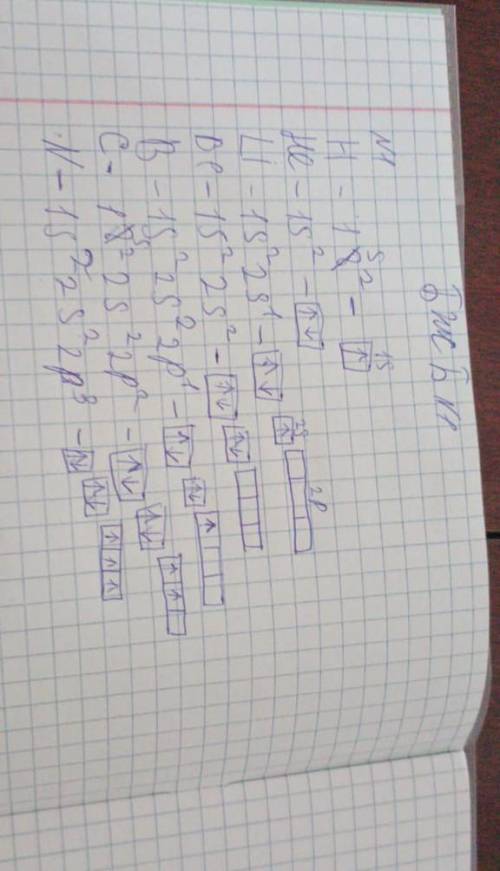 N1
H - 1S² - ↑ 1S
He - 1S² - ↑↓
Li - 1S² 2S¹ - ↑↓ ↑ 2S 2P
Be - 1S² 2S² - ↑↓ ↑↓
B - 1S² 2S² 2p¹ - ↑↓ ↑↓ ↑
C - 1S² 2S² 2p² - ↑↓ ↑↓ ↑ ↑
N - 1S² 2S² 2p³ - ↑↓ ↑↓ ↑ ↑ ↑